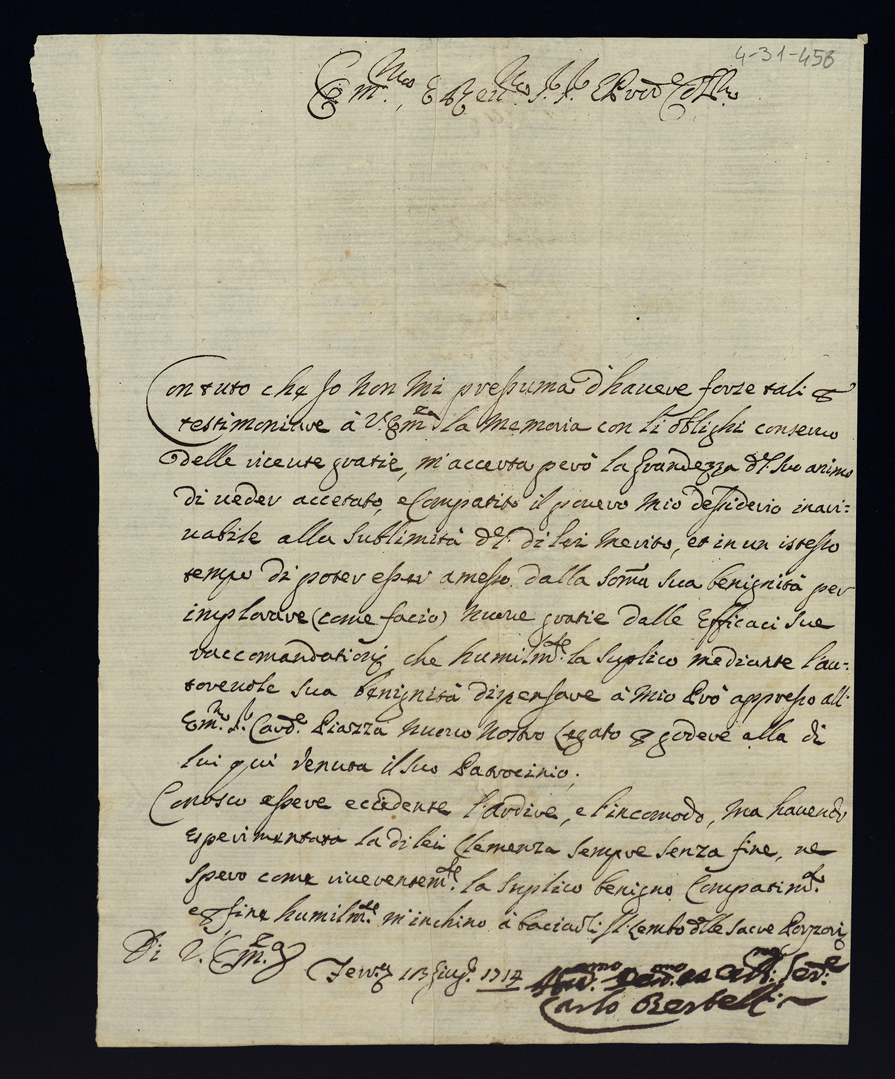 4-31-458
Em.mo, E Rev.mo S.r S.r Prōn Col.mo
Contuto che Jo non mi pressuma d'havere forze tali p
testimoniare à V. Em.za la memoria con li oblighi conservo
delle ricente gratie, m'accerta però la Grandezza del suo animo
di veder accetato, e Compatito il povero mio dessiderio inari=
vabile alla sublimità del di lei merito, et in un istesso
tempo di poter esser amesso dalla somā sua benignità per
implorare (come facio) nuove gratie dalle Efficaci sue
raccomandationi, che humilm.te la suplico mediante l'au=
torevole sua benignità dispensare à mio Prò appresso all'
Em.mo S.r Card.e Piazza nuovo nostro Legato p godere alla di
lui qui venuta il suo Patrocinio.
Conosco essere eccedente l'ardire, e l'incomodo, ma havendo
esperimentata la di lei Clemenza sempre senza fine, ne
spero come riverentem.te la suplico benigno Compatim.to
e p fine humilm.te m'inchino à baciarli il Lembo delle sacre Porpore
Di V. Em.za
Ferr.a 13 Giug.o 1714
Hum.mo Dev.mo et Obb.mo Ser.e
Carlo Bertelli